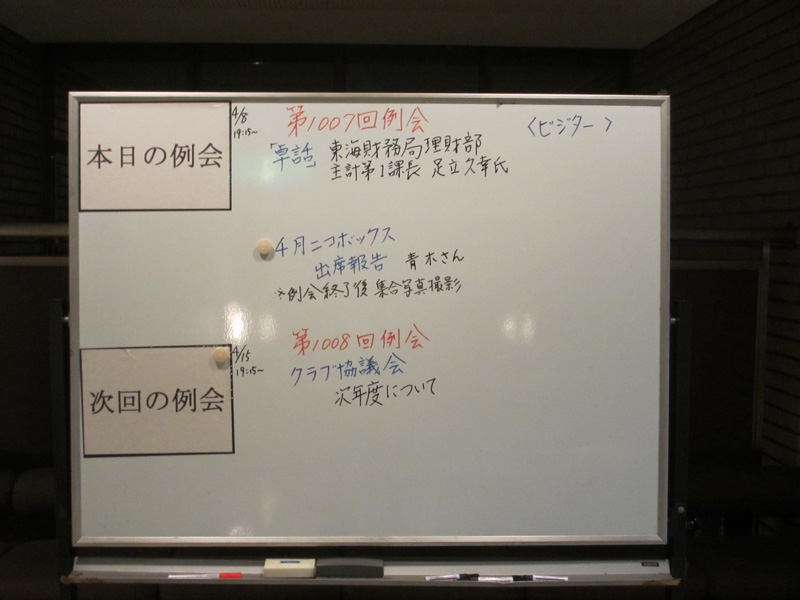 本日の例会
4/8
19:15~
第1007回例会
「卓話」 東海財務局理財部
主計第1課長 足立久幸氏
<ビジター>
4月ニコボックス
出席報告 青木さん
※例会終了後 集合写真撮影
次回の例会
4/15
19:15~
第1008回例会
クラブ協議会
次年度について